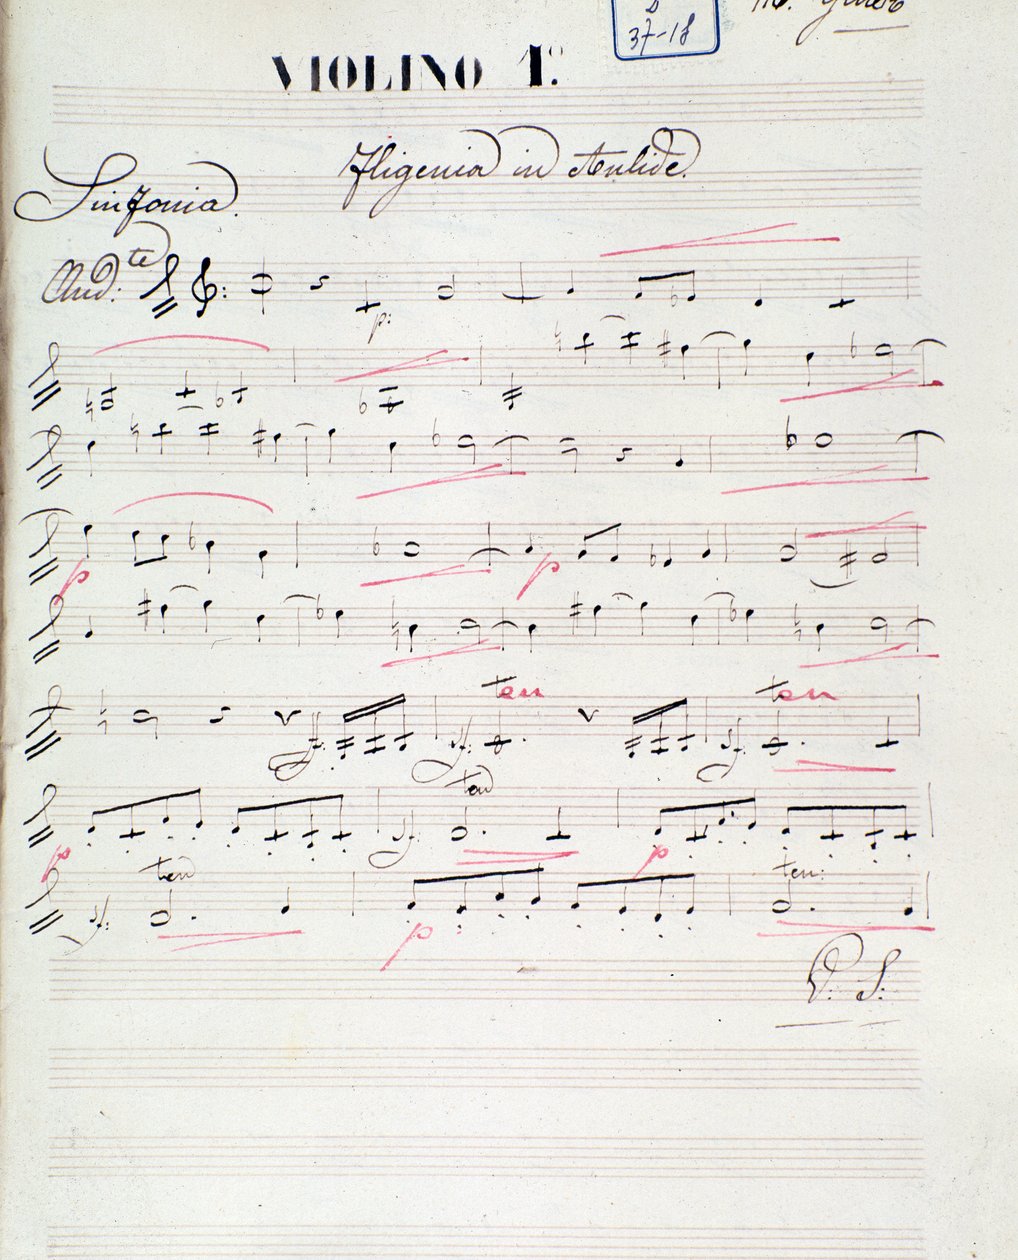 D
37-18
VIOLINO 1º.
Ifigenia in Aulide.
Sinfonia.
And:te
p:
p
p
ten
ten
sf:
sf:
sf:
ten
sf:
p
p
ten
ten:
sf:
p
V: S: